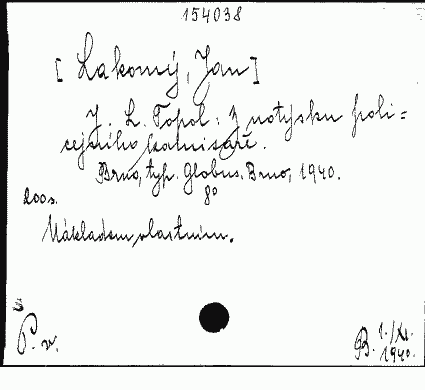 154038
[Lakomý, Jan]
J. L. Topol: Z notysku poli=
cejního komisaře.
Brno, typ. Globus, Brno, 1940.
200 s. 8°
Nákladem vlastním.
P. w.
B. 1./XI.
1940.